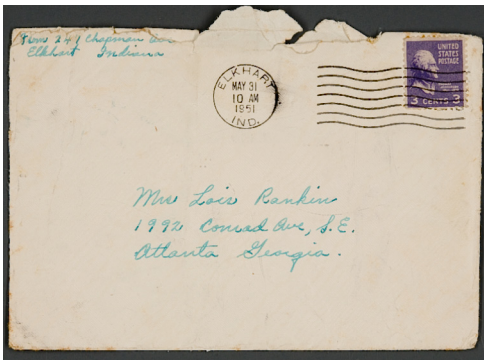 241 Chapman Ave
Elkhart Indiana
ELKHART
MAY 31
10 AM
1951
IND.
UNITED
STATES
POSTAGE
3 CENTS 3
Mrs Lois Rankin
1992 Conrad Ave, S.E.
Atlanta Georgia.